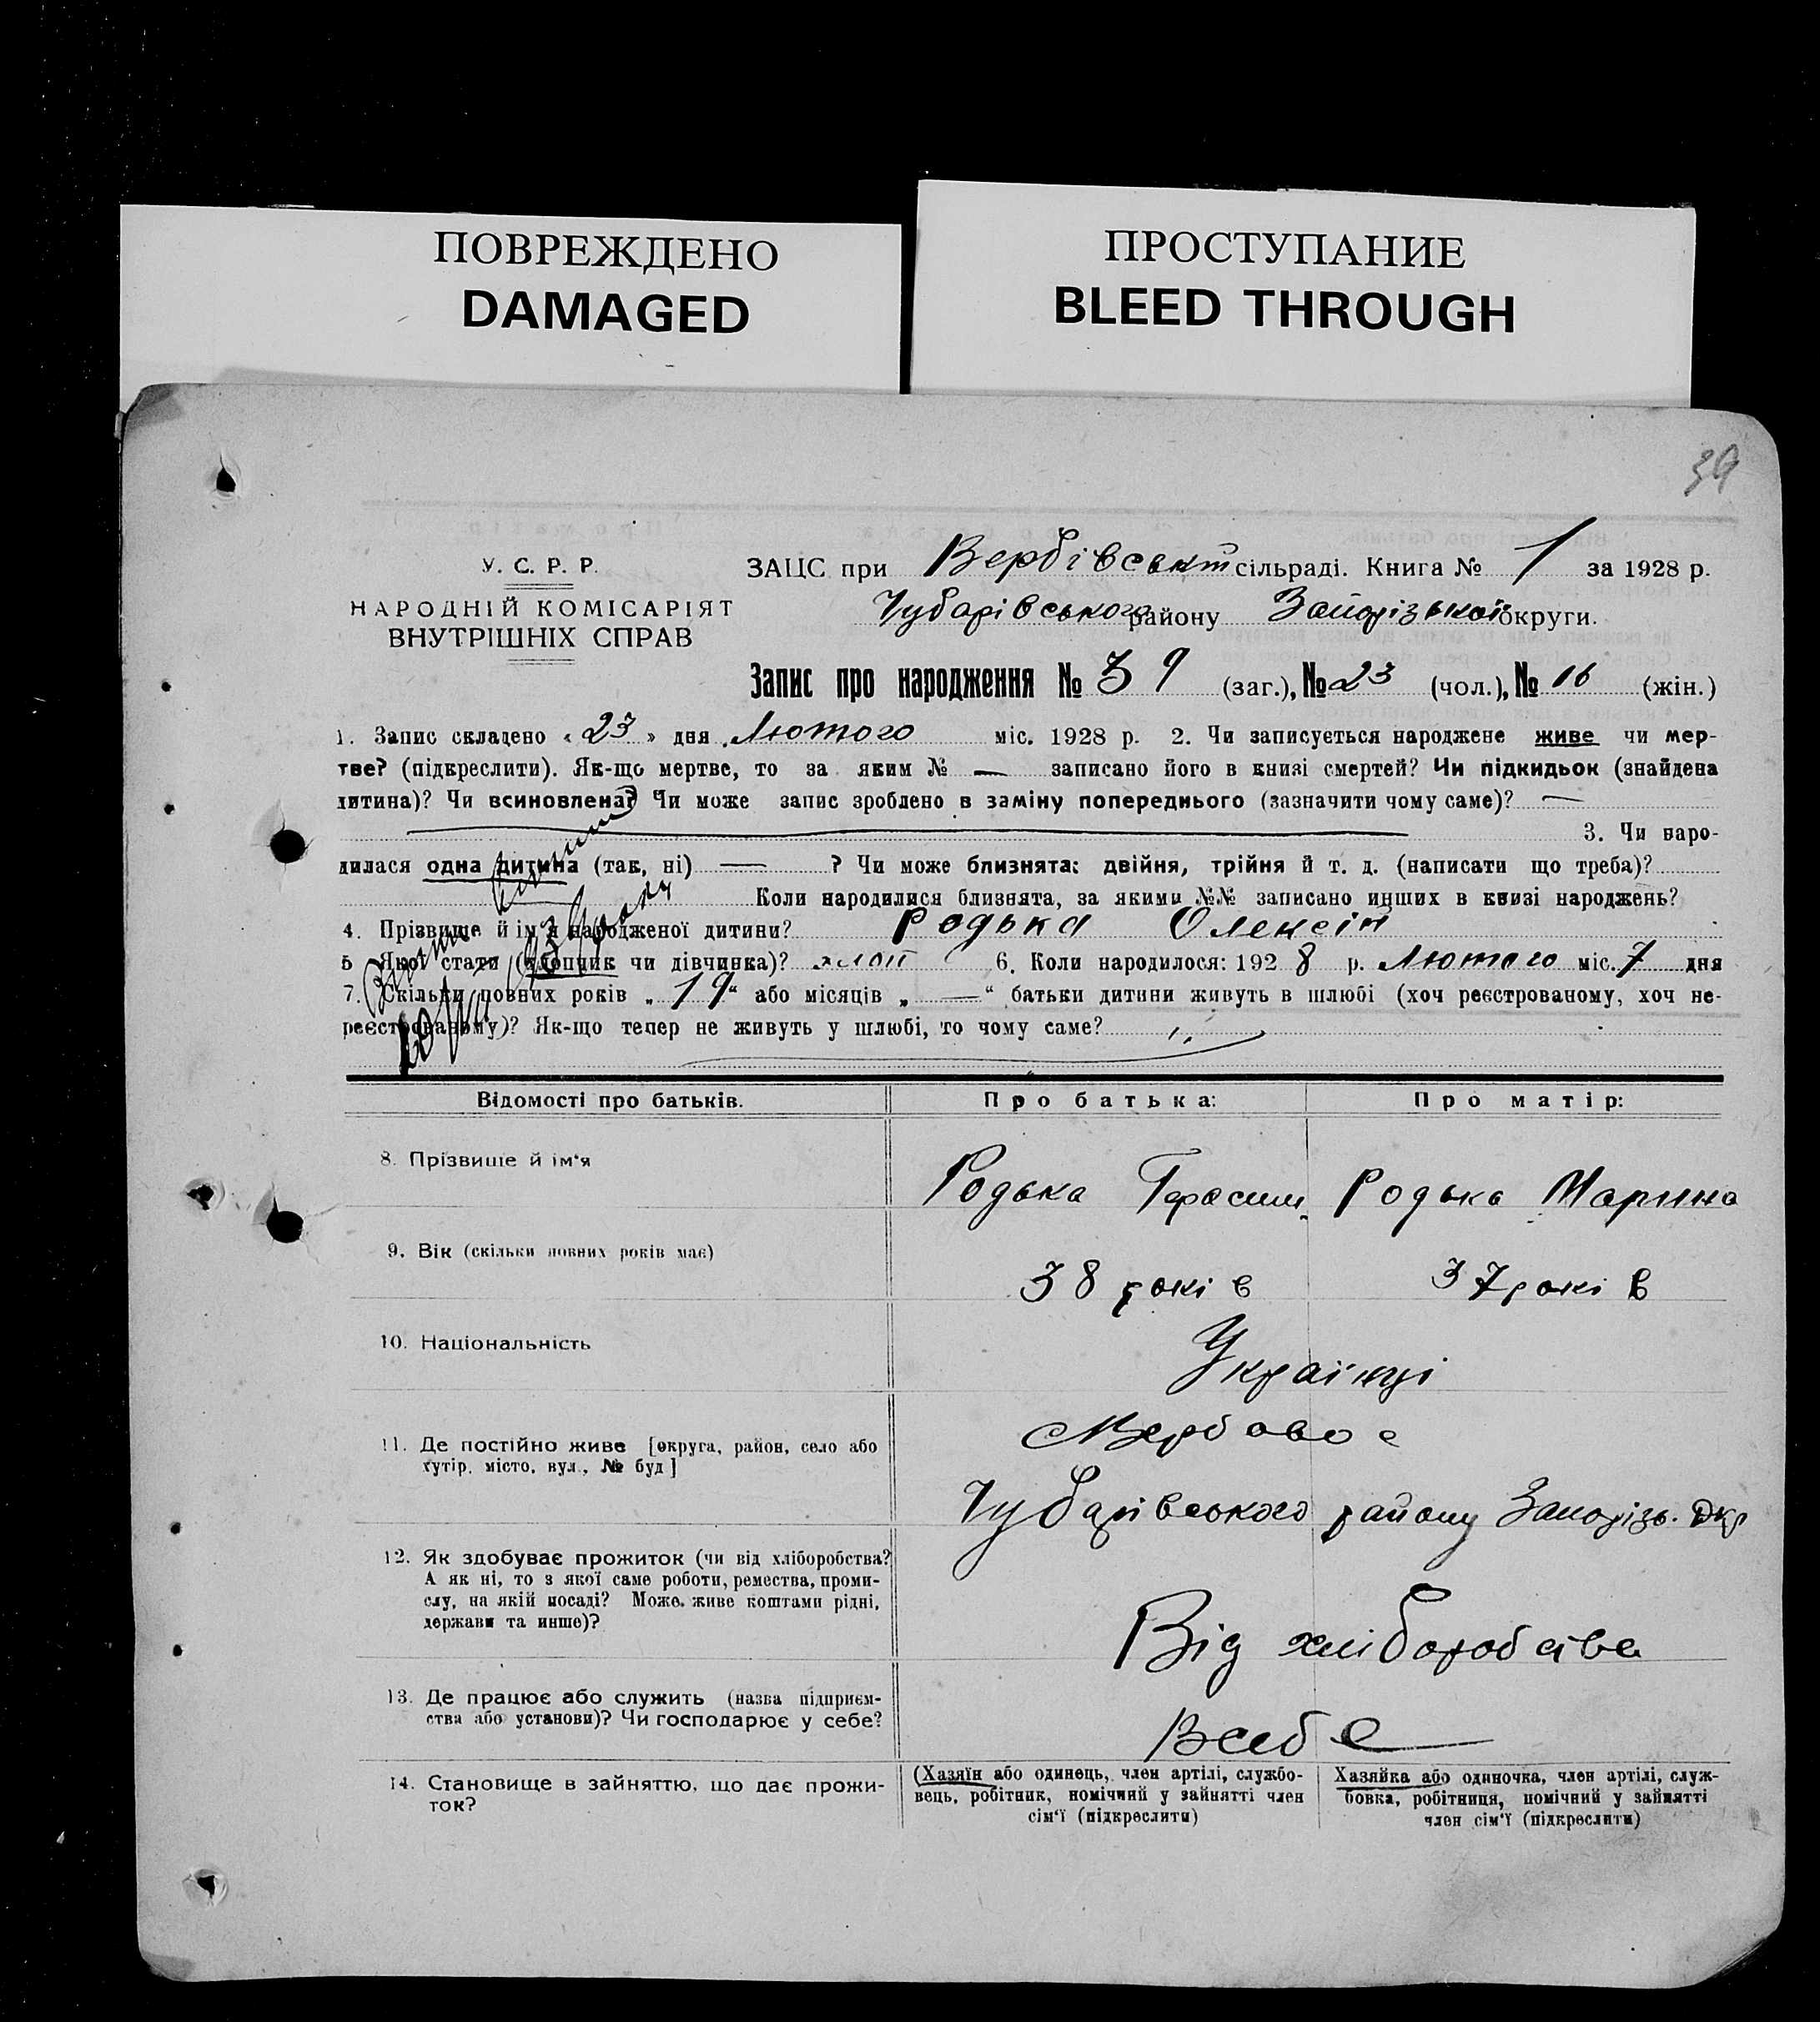 ПОВРЕЖДЕНО
DAMAGED
ПРОСТУПАНИЕ
BLEED THROUGH
39
У. С. Р. Р.
НАРОДНІЙ КОМІСАРІЯТ
ВНУТРІШНІХ СПРАВ
ЗАЦС при Вербівськт сільраді. Книга № 1 за 1928 р.
Чубарівського району Запорізької округи.
Запис про народження № 39 (заг.), № 23 (чол.), № 16 (жін.)
1. Запис складено « 23 » дня Лютого міс. 1928 р. 2. Чи записується народжене живе чи мер-
тве? (підкреслити). Як-що мертве, то за яким № — записано його в книзі смертей? Чи підкидьок (знайдена
дитина)? Чи всиновлена? Чи може запис зроблено в заміну попереднього (зазначити чому саме)? —
3. Чи наро-
дилася одна дитина (так, ні) — ? Чи може близнята: двійня, трійня й т. д. (написати що треба)?
Коли народилися близнята, за якими №№ записано инших в книзі народжень?
4. Прізвище й ім'я народженої дитини? Родька Олексій
5 Якої стати (хлопчик чи дівчинка)? хлоп 6. Коли народилося: 1928 р. Лютого міс. 7 дня
7. Скільки повних років „ 19 “ або місяців „ — “ батьки дитини живуть в шлюбі (хоч реєстрованому, хоч не-
реєстрованому)? Як-що тепер не живуть у шлюбі, то чому саме?
Відомості про батьків.
Про батька:
Про матір:
8. Прізвище й ім'я
Родька Герасим
Родька Марина
9. Вік (скільки повних років має)
38 років
37 років
10. Національність
Українці
11. Де постійно живе [округа, район, село або
хутір, місто, вул., № буд]
с Вербове
Чубарівського району Запорізь. Окр
12. Як здобуває прожиток (чи від хліборобства?
А як ні, то з якої саме роботи, ремества, проми-
слу, на якій посаді? Може живе коштами рідні,
держави та инше)?
Від хліборобства
13. Де працює або служить (назва підприєм-
ства або установи)? Чи господарює у себе?
В себе
14. Становище в зайняттю, що дає прожи-
ток?
(Хазяїн або одинець, член артілі, службо-
вець, робітник, помічний у зайнятті член
сім'ї (підкреслити)
Хазяйка або одиночка, член артілі, служ-
бовка, робітниця, помічний у зайнятті
член сім'ї (підкреслити)